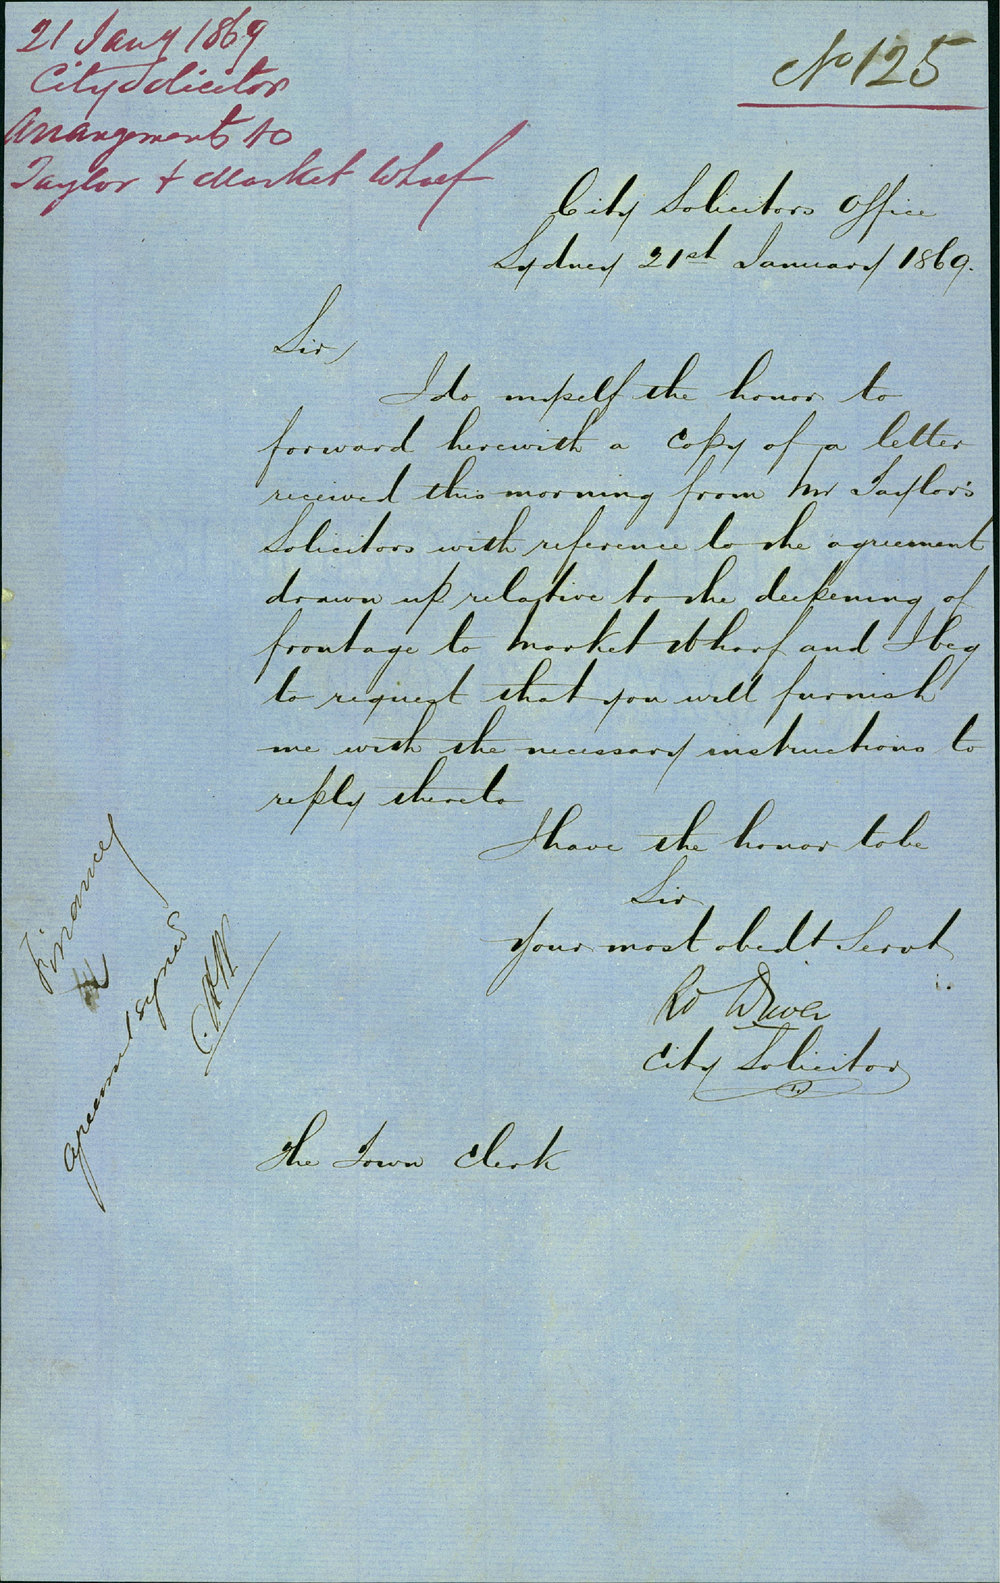 21 Jany 1869
City Solicitor
Arrangement to
Taylor & Market Wharf
No 125
City Solicitors Office
Sydney 21st January 1869.
Sir,
I do myself the honor to
forward herewith a copy of a letter
received this morning from Mr Taylor's
Solicitors with reference to the agreement
drawn up relative to the deepening of
frontage to Market Wharf and I beg
to request that you will furnish
me with the necessary instructions to
reply thereto
I have the honor to be
Sir
Your most obedt Servt
Rd Driver
City Solicitor
The Town Clerk
Finance
agreement signed